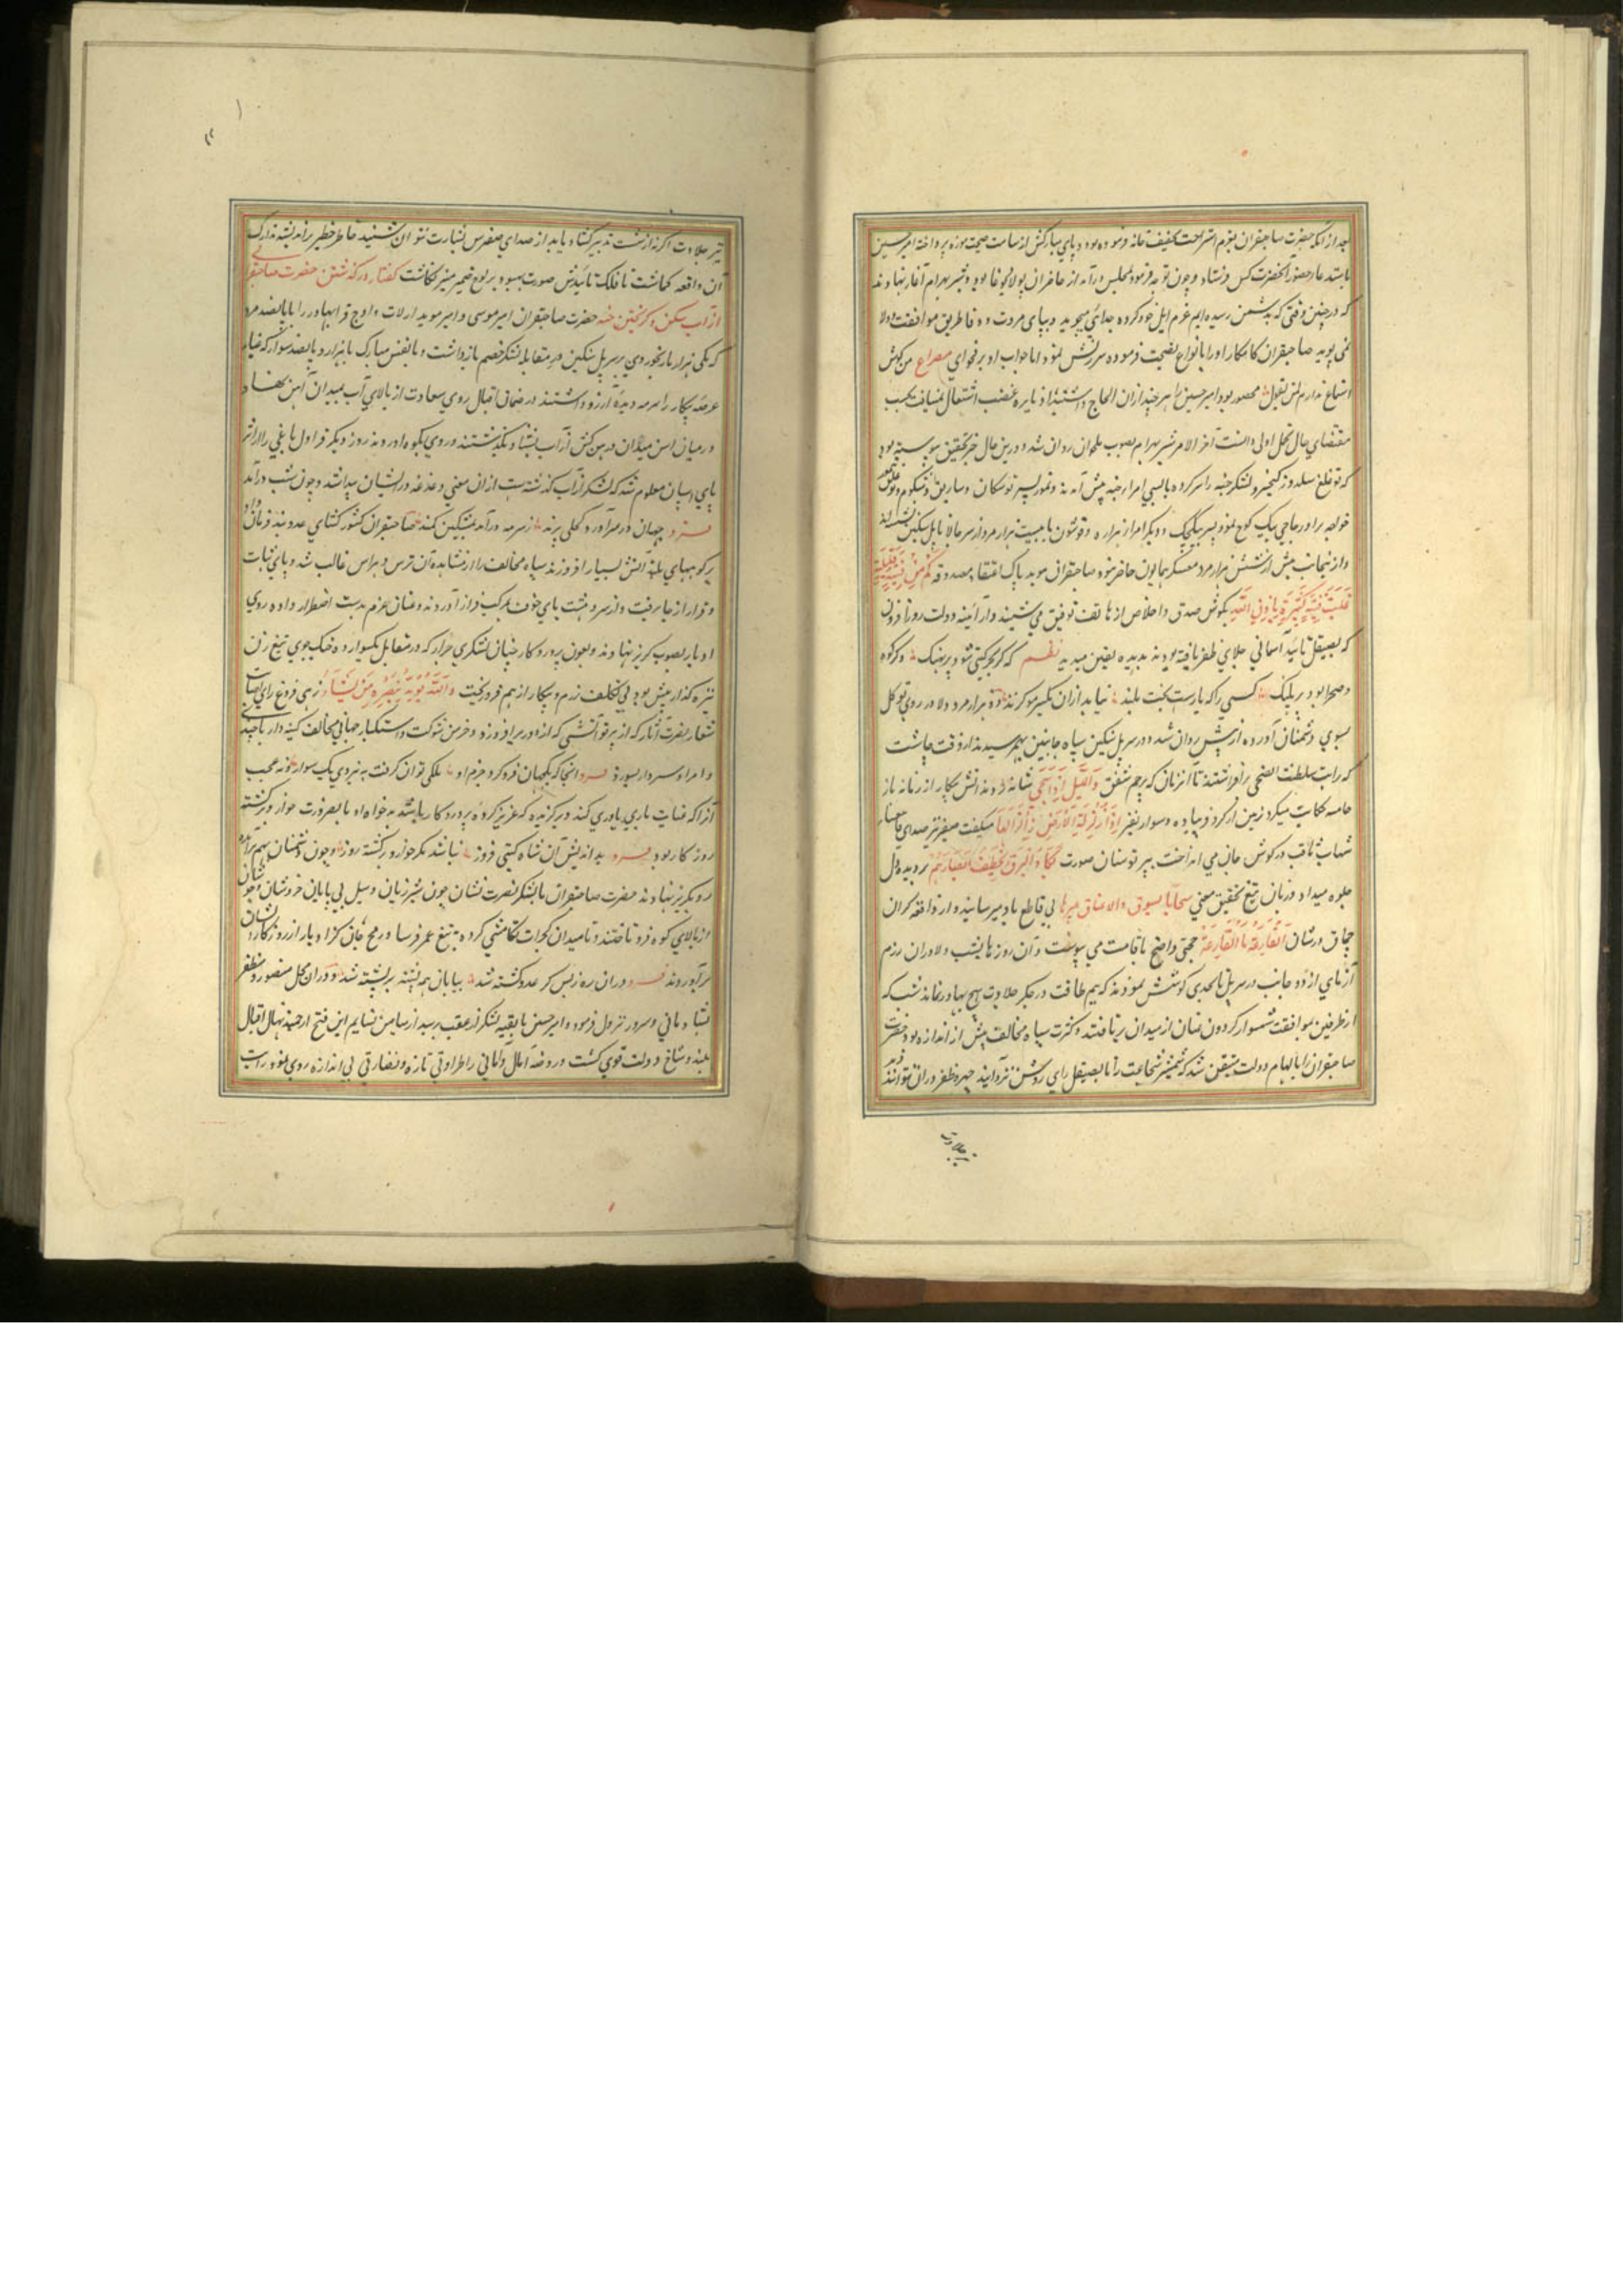 بعد از آنکه حضرت صاحبقران بعزم استراحت تخفیف خانه فرموده بود و پای مبارکش از موزه پرداخته امیر حسین
باستدعا حضور آنحضرت کس فرستاد و چون توجه فرمود بمجلس درآمد از حاضران پولاد بوغا بود و شیر بهرام آغاز نهاد
که در چنین وقتی که بدشمن رسیده‌ایم عزم ایل خود کرده جدائی میجوید و بپای مروت و وفا طریق موافقت و ولا
نمی پوید صاحبقران کامکار او را بانواع نصیحت فرموده سرزنش نمود اما جواب او بر فحوای مصراع من گوش
استماع ندارم لمن تقول محصور بود امیر حسین را هر چند ازان الحاح نایره غضب اشتعال
مقتضای حال تحمل اولی دانست آخر الامر شیر بهرام بصوب روان شد و درین حال خبر تحقیق پیوسته بود
که توغلغ سلدوز و کیخسرو لشکر جته را سر کرده با بسی امراء جته پیش آمدند و تمور پسر توبکان و ساریق و شنکوم و توغلق
خواجه برادر حاجی بیک کوچ نمود پسر بیکیجک و دیگر امرا از هزاره و قوشون با بیست هزار مرد از سر جالا تا پل سنگین نشسته‌اند
و ازینجانب بیش از شش هزار مرد در معسکر همایون حاضر نبود صاحبقران موید پاک اعتقاد مصدوقه کم من فئة قلیلة
غلبت فئة کثیرة باذن الله بگوش صدق و اخلاص از هاتف توفیق می شنید و از آئینه دولت روز افزون
که بصیقل تائید آسمانی جلای ظفر یافته بود بدیده یقین میدید نظم که گر بحر گیتی شود پر نهنک و گر کوه
و صحرا بود پر پلنک کسی را که یارست بخت بلند نیاید ازان یکسر مو گزند دو هزار مرد دلاور روی توکل
بسوی دشمنان آورده از پیش روان شد و در سر پل سنگین سپاه جانبین بهم رسیدند از وقت چاشت
که رایت سلطنت الضحی برافراشتند تا آن زمان که پرچم شفق و اللیل اذا سجی شانه زدند آتش پیکار از زبانه باز
حامیه حکایت میکرد زمین از گرد پیاده و سوار نفیر اذا زلزلت الارض زلزالها میگفت صفیر تیر صدای فاتبعه
شهاب ثاقب در گوش جان می انداخت بیر توسنان صورت یکاد البرق یخطف ابصارهم بر دیده دل
جلوه میداد و زبان تیغ تحقیق معنی بالسوق والاعناق بی قاطع باد میرسانید و از واقعه گران
چماق در شان القارعة ما القارعة حجتی واضح باقامت می پیوست و آن روز تا بشب دلاوران رزم
آزمای از دو جانب در سر پل تا بحدی کوشش نمودند که هیچ طاقت در جگر جلادت هیچ بهادر نماند شب که
از طرفین بموافقت شهسوار گردون عنان از میدان برتافتند و کثرت سپاه مخالف بیش از اندازه بود حضرت
صاحبقران را بالهام دولت متیقن شد که شمشیر شجاعت را تا بصیقل رای روشن نزدایند چهره ظفر در آن نتوانند دید
تیر جلادت اگر نه از شست تدبیر گشاد یابد از صدای صفیرش بشارت نتوان شنید خاطر خطیر بر اندیشه تدارک
آن واقعه گماشت تا فلک تائیدش صورت بهبود بر لوح ضمیر منیر نگاشت گفتار در گذشتن حضرت صاحبقران
از آب سنگین و گریختن جته حضرت صاحبقران امیر موسی و امیر موید ارلات و اوچ قرا بهادر را با پانصد مرد
که یکی هزار بار نخوردی بر سر پل سنگین در مقابله لشکر خصم بازداشت و بانفس مبارک با هزار و پانصد سوار که غبار
عرصه پیکار را سرمه دیده آرزو داشتند در ضمان اقبال روی سعادت از بالای آب بمیدان آمدن نهاد
و از میان کش از آب بشناه بگذشتند و روی بکوه آوردند روز دیگر قراول یاغی را از اثر
پای اسپان معلوم شد که لشکر از آب گذشته است ازان معنی دغدغه در ایشان پیدا شد و چون شب درآمد
فرد جهان در سرآورد کحلی پرند ز سرمه درآمد بمشکین کمند صاحبقران کشور گشای عدوبند فرمان داد
بر کوههای بلند آتش بسیار افروزند سپاه مخالف را از مشاهده آن ترس و هراس غالب شد و پای ثبات
و قرار از جا برفت و از سر دهشت پای خوف بمرکب فرار آوردند و عنان عزم بدست اضطرار داده روی
ادبار بصوب گریز نهادند و بعون پروردگار چنان لشکری جرار که در مقابل یکسوار ده جنگجوی تیغ زن
نیزه گذار بیش بود بی تکلف رزم و پیکار از هم فرو ریخت والله یؤید بنصره من یشاء زهی فروغ رای صایب
شعار نصرت آثار که از پرتو آتشی که از دور برافروزد و خرمن شوکت و استکبار جهانی مخالف کینه دار با چندین
امراء و سردار بسوزد فرد آنجا که یکجهان فرو گیرد حزم او ملکی توان گرفت به نیروی یک سوار و نه عجب
آنرا که عنایت باری یاوری کند و برگزیده که عزیز کرده پروردگار باشد بدخواه او بالضرورت خوار و برگشته
روزگار بود فرد بداندیش آن شاه گیتی فروز نباشد مگر خوار و برگشته روز و چون دشمنان بهم برآمده
رو بگریز نهادند حضرت صاحبقران با لشکر نصرت نشان چون شیر ژیان و سیل بی پایان خروشان و جوشان
از بالای کوه فرو تاختند و تا میدان گجرات تکامشی کرده به تیغ عمر فرسا و رمح جان گزا دمار از روزگار ایشان
برآوردند فرد در آن ره ز بس کز عدو کشته شد بیابان همه پشته بر پشته شد و در آن محل منصور و مظفر
بشادمانی و سرور نزول فرمود و امیر حسین با بقیه لشکر از عقب برسید از میامن نسایم این فتح ارجمند نهال اقبال
بلند و شاخ دولت قوی گشت و روضه آمال و امانی را طراوتی تازه و نضارتی بی اندازه روی نمود رایت